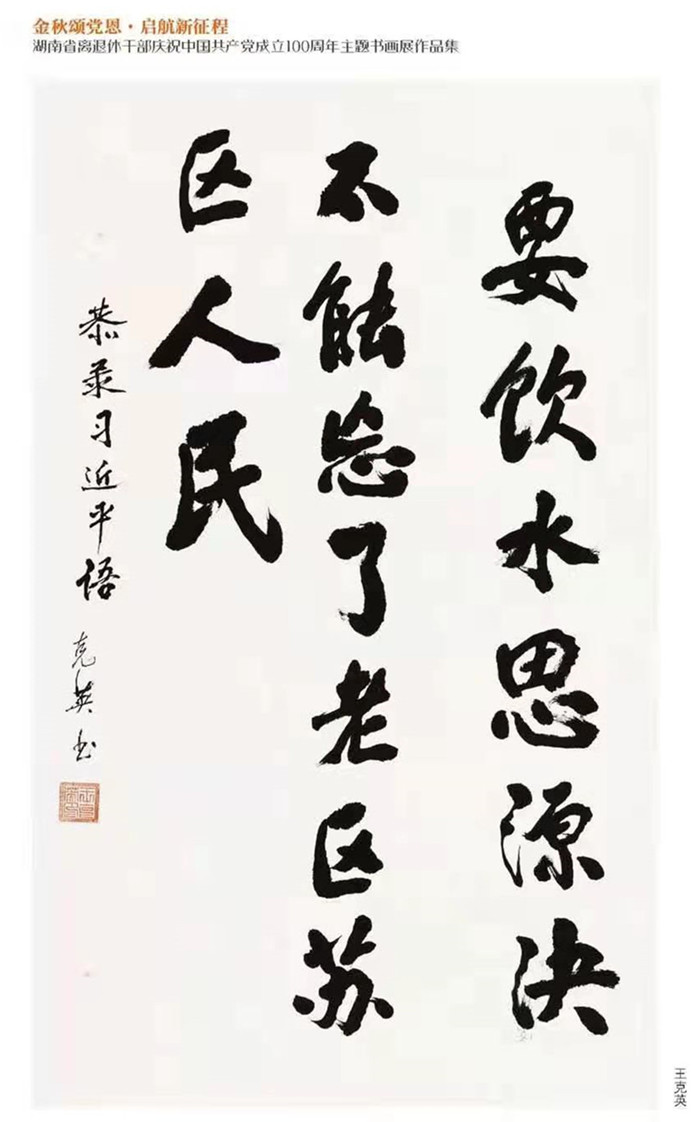 金秋颂党恩·启航新征程
湖南省离退休干部庆祝中国共产党成立100周年主题书画展作品集
要饮水思源决
不能忘了老区苏
区人民
恭录习近平语
克英书
王克英